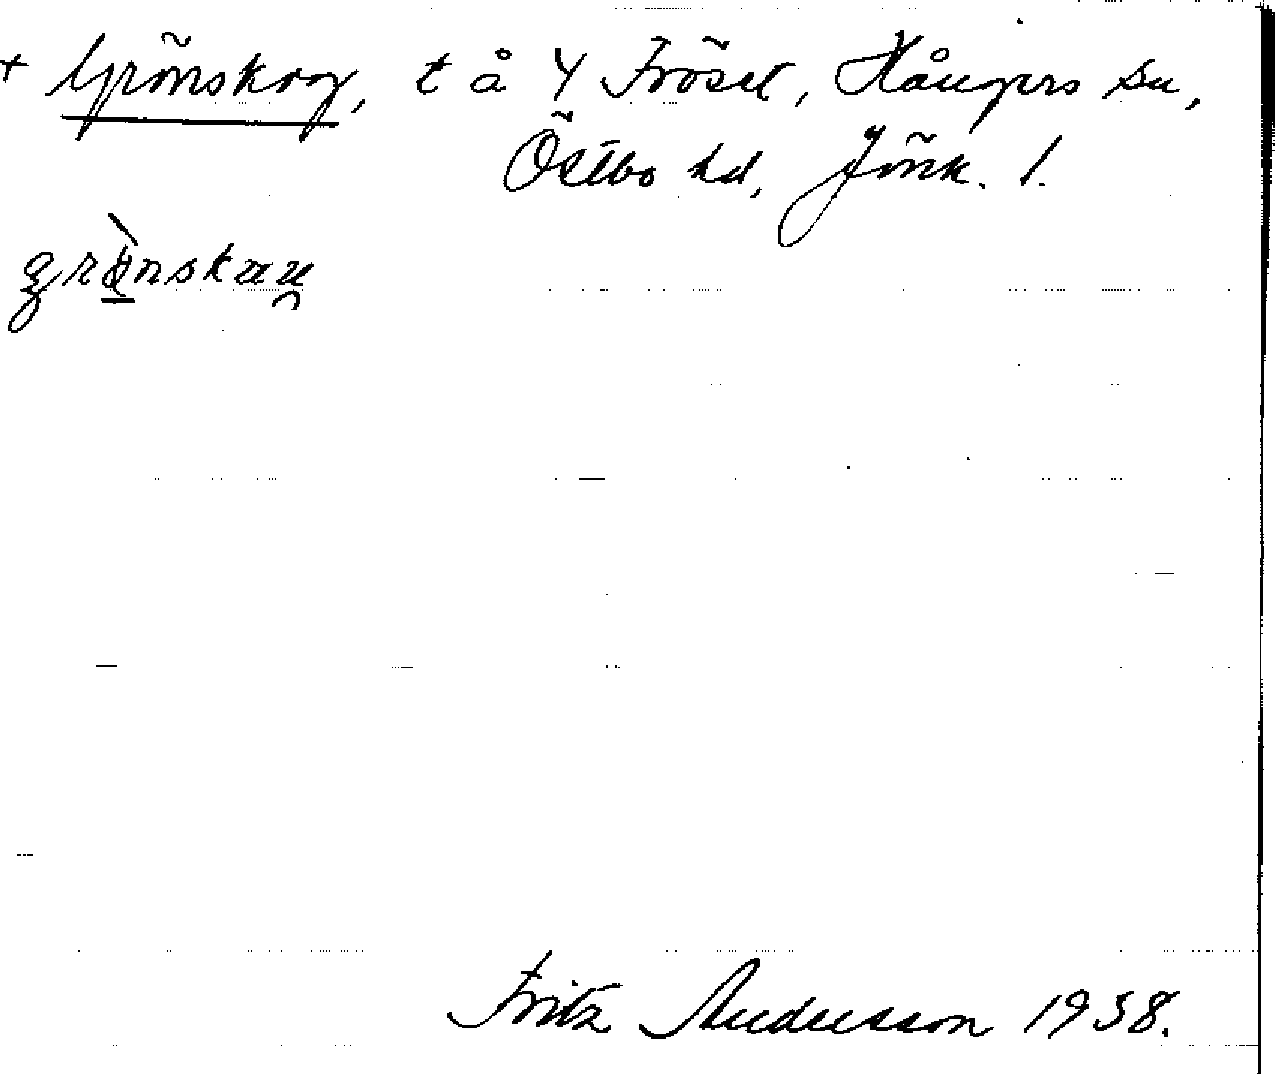 + Grönskog, t å 4 Frösel, Hångers sn,
Östbo hd, Jönk. l.
grønskuu
Fritz Andersson 1938.